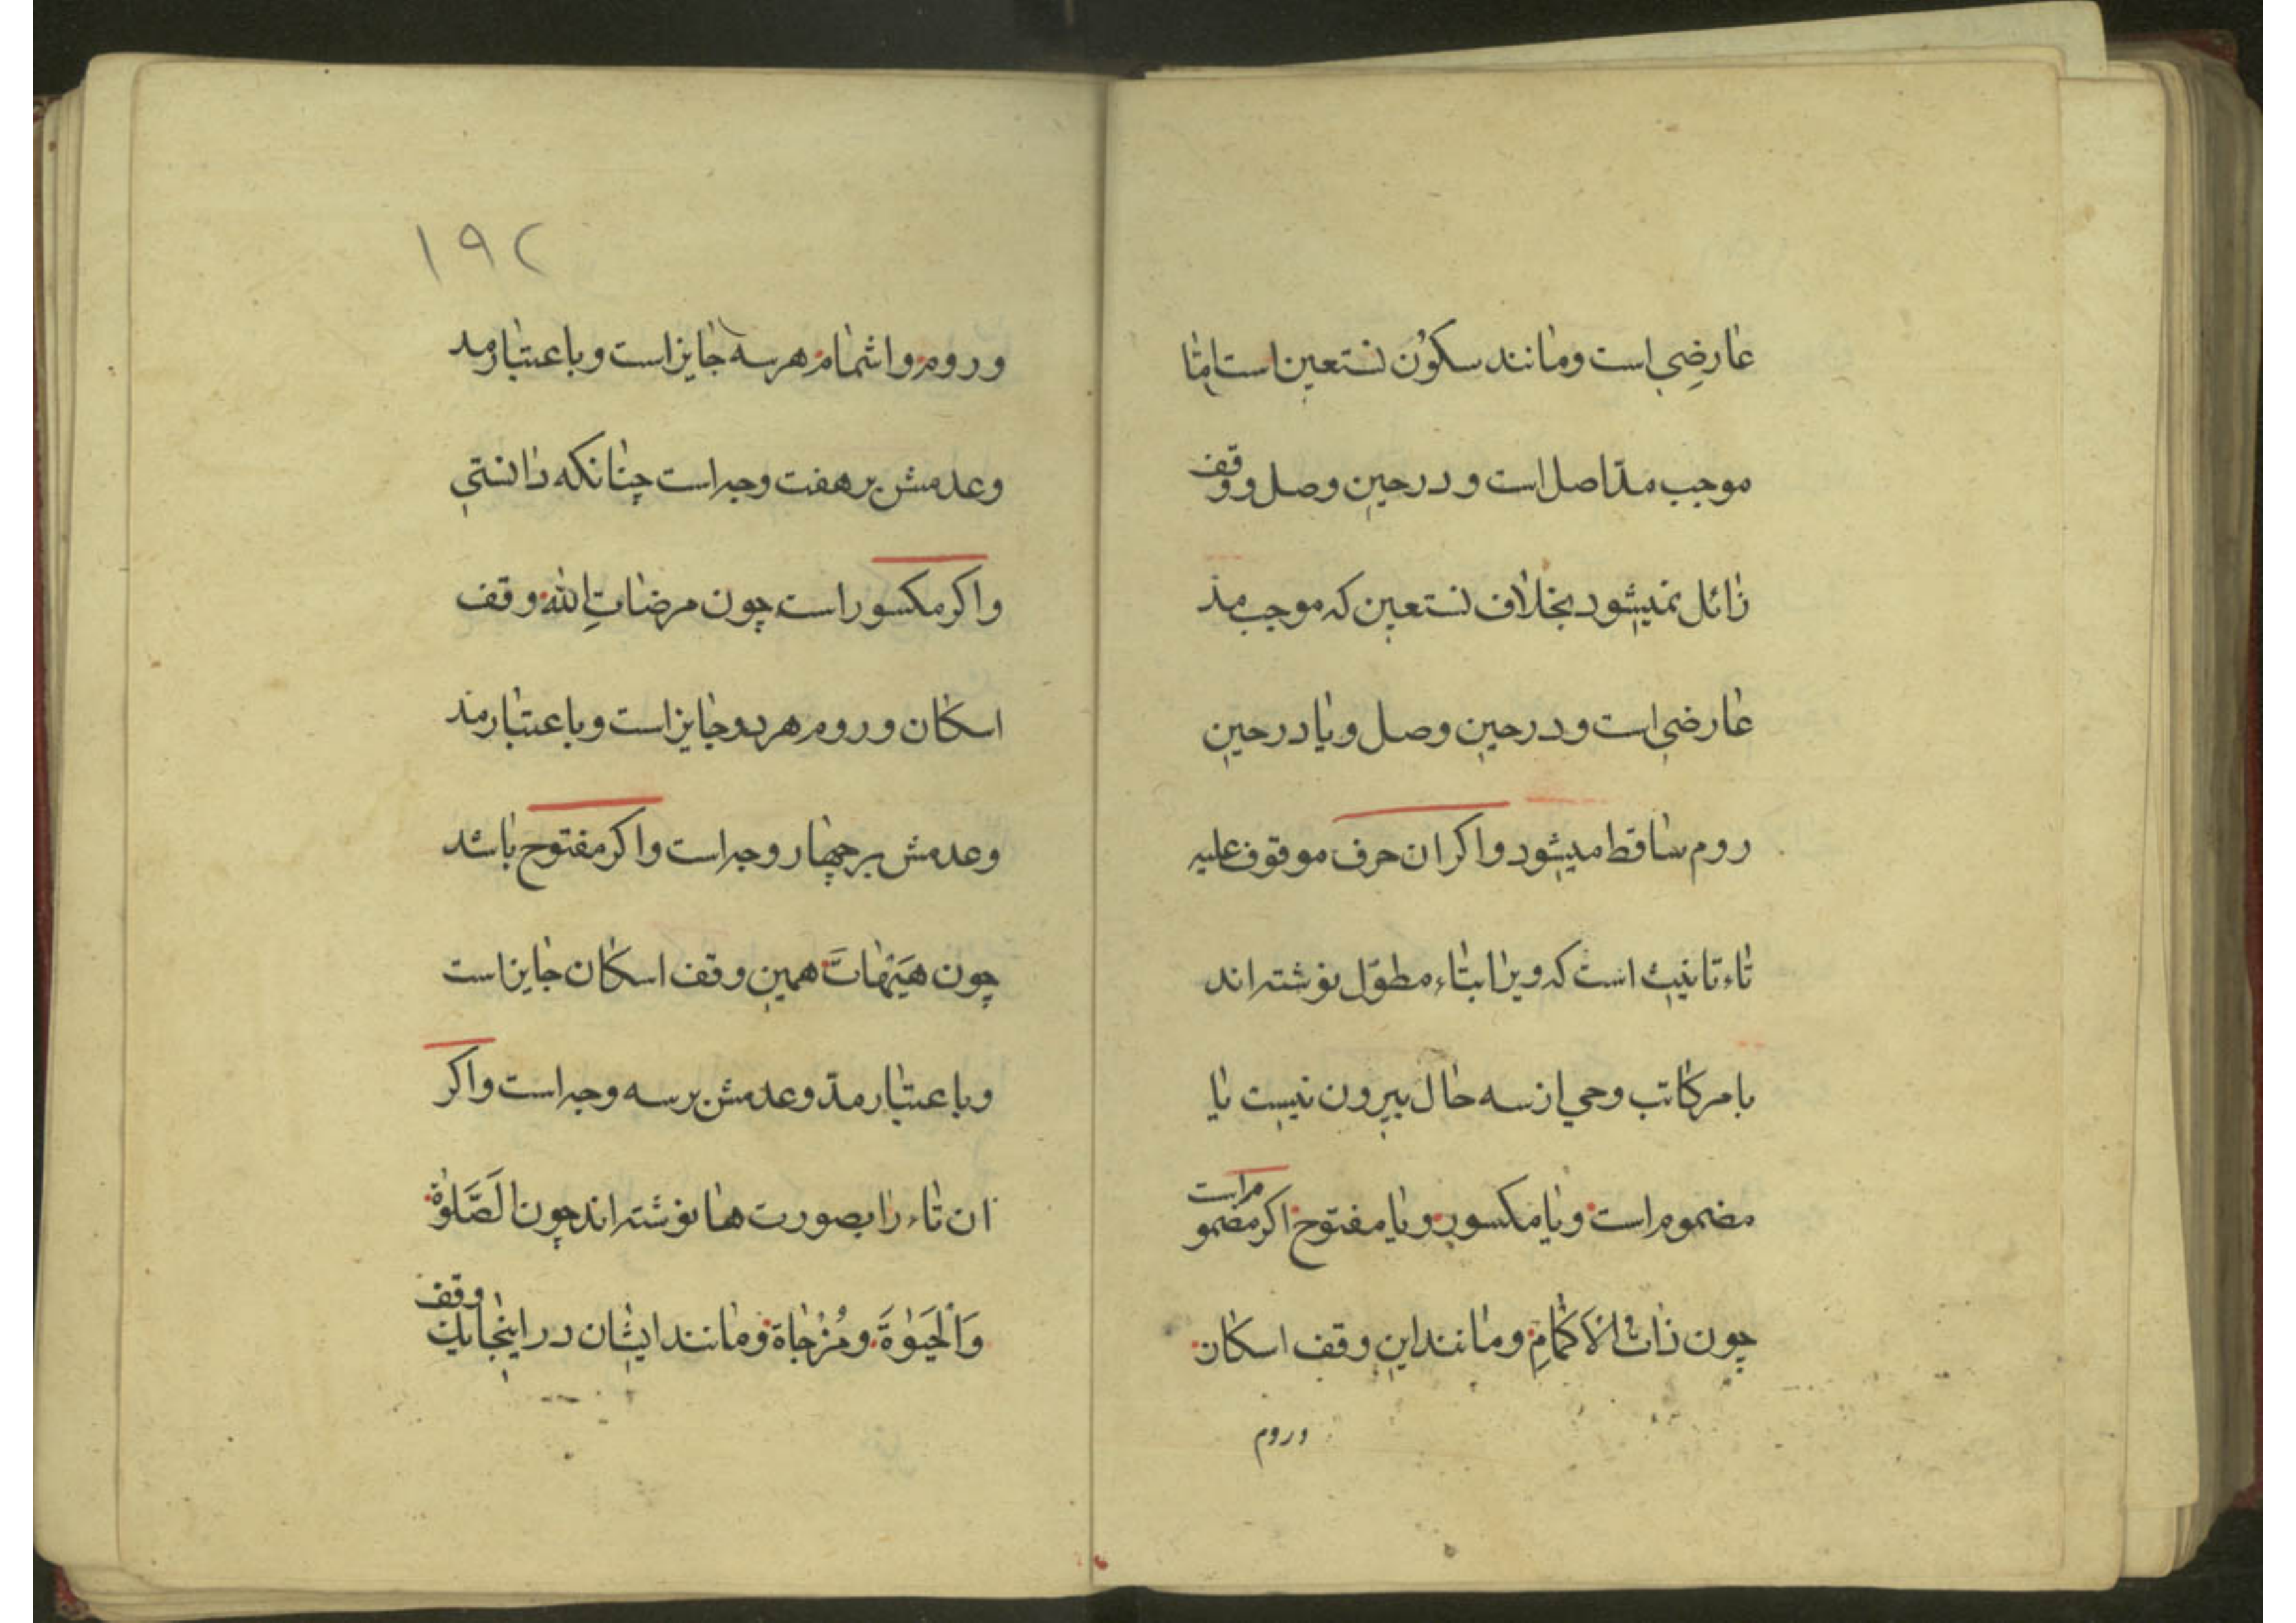 عارضی است ومانند سکون نستعین است امّا
موجب مدّ اصل است ودر حین وصل ووقف
زائل نمیشود بخلاف نستعین که موجب مدّ
عارضی است ودر حین وصل ویا در حین
روم ساقط میشود واکر ان حرف موقوف علیه
تاء تانیث است که ویرا بتاء مطوّل نوشته اند
بامر کاتب وحی از سه حال بیرون نیست یا
مضموم است ویا مکسور ویا مفتوح اکر مضموم است
چون ذاتُ الاَکمَامِ ومانند این وقف اسکان
وروم
۱۹۲
وروم واشمام هر سه جایز است وباعتبار مد
وعدمش بر هفت وجه است چنانکه دانستی
واکر مکسور است چون مرضاتِ الله وقف
اسکان وروم هر دو جایز است وباعتبار مد
وعدمش بر چهار وجه است واکر مفتوح باشد
چون هَیْهَاتَ همین وقف اسکان جایز است
وباعتبار مدّ وعدمش بر سه وجه است واکر
ان تاء را بصورت ها نوشته اند چون الَصَّلَوٰةُ
وَالْحَیَوٰةَ ومُزْجَاة ومانند ایشان در اینجا یک وقف